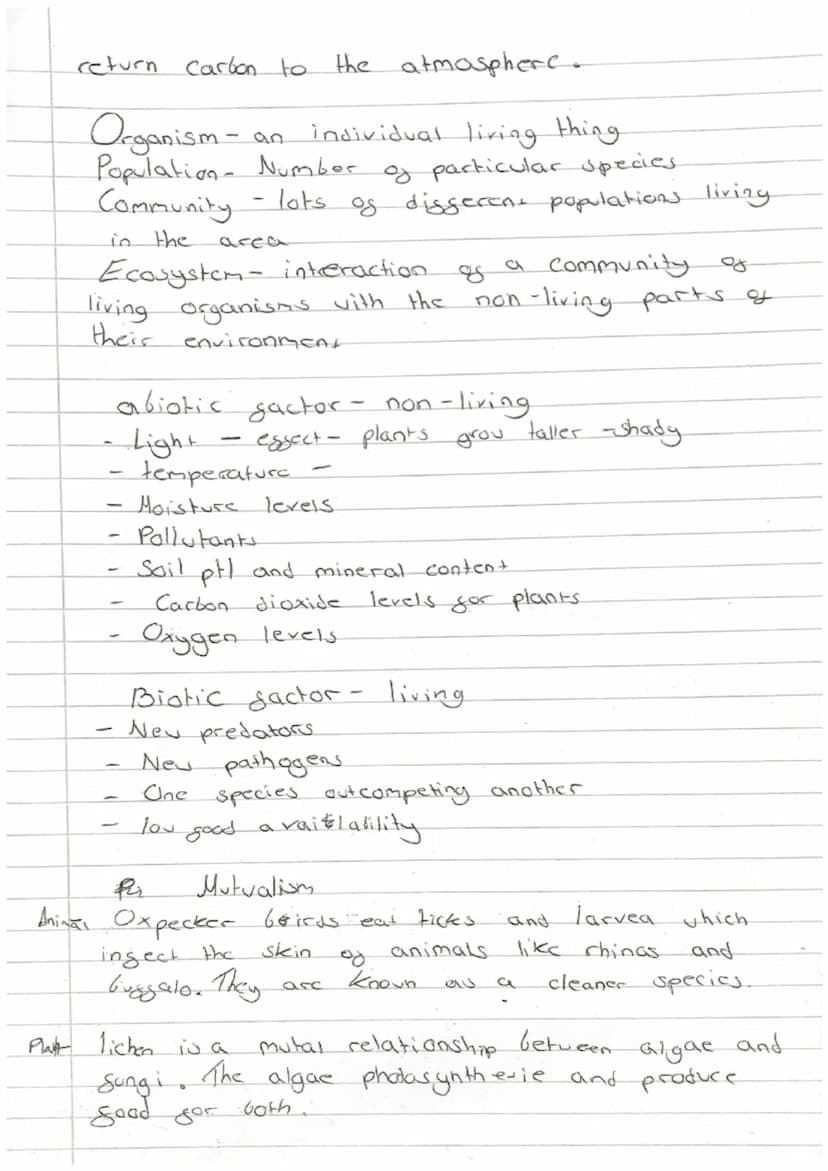 return carbon to the atmosphere.
Organism - an individual living thing
Population - Number of particular species
Community - lots of different populations living
in the area
Ecosystem - interaction of a community of
living organisms with the non-living parts of
their environment
abiotic factor - non-living
- Light - effect - plants grow taller - shady
- temperature -
- Moisture levels
- Pollutants
- Soil pH and mineral content
- Carbon dioxide levels for plants
- Oxygen levels
Biotic factor - living
- New predators
- New pathogens
- One species outcompeting another
- low food availability
Mutualism
Animal Oxpecker birds eat ticks and larvea which
infect the skin of animals like rhinos and
buffalo. They are known as a cleaner species.
Plant lichen is a mutal relationship between algae and
fungi. The algae photosynthesie and produce
food for both.